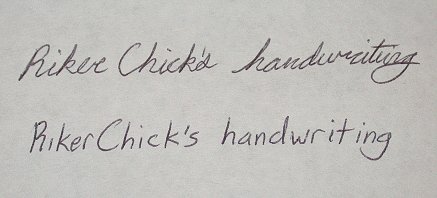 Riker Chick's handwriting
RikerChick's handwriting